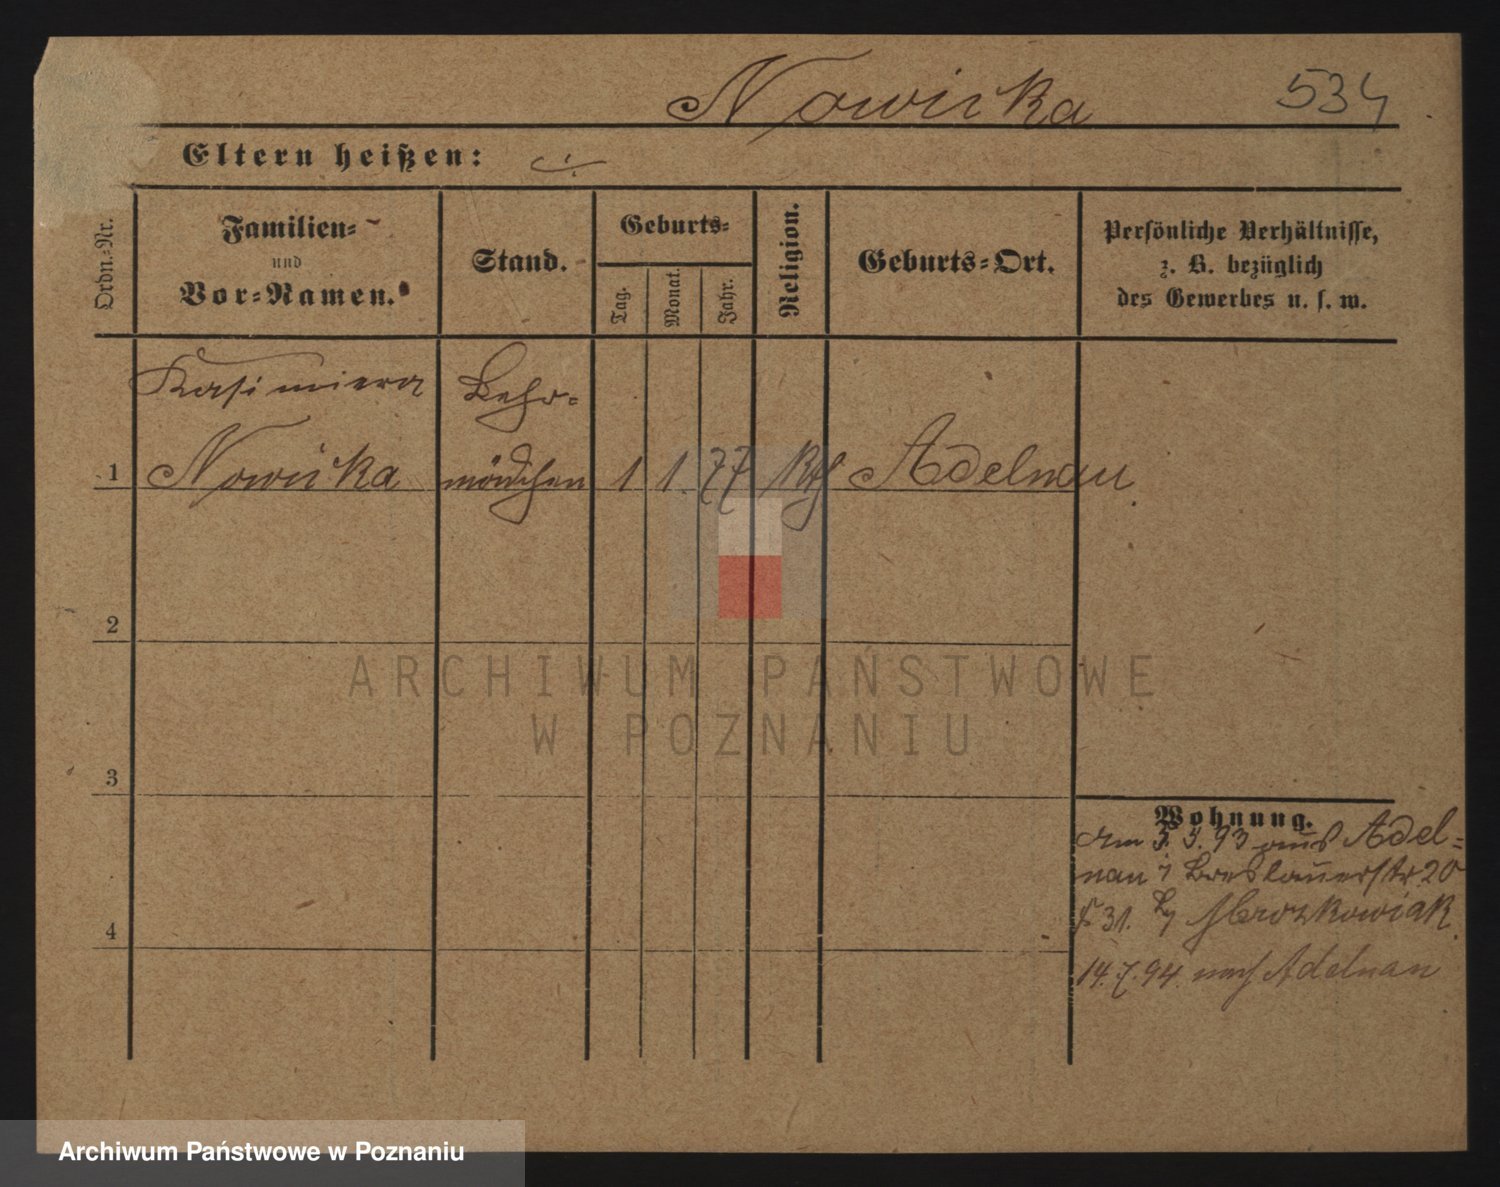 Nowicka 534
Eltern heißen: ./.
Ordn.-Nr.
Familien-
und
Vor-Namen.
Stand.
Geburts-
Tag.
Monat.
Jahr.
Religion.
Geburts-Ort.
Persönliche Verhältnisse,
z. B. bezüglich
des Gewerbes u. s. w.
Kasimiera Lehr-
1 Nowicka mädchen 1 1. 77 Kth Adelnau.
2
ARCHIWUM PAŃSTWOWE
W POZNANIU
3
Wohnung.
5. 93 aus Adel-
nau Breslauerstr 20
31. Mrozkowiak.
4
14.7.94. nach Adelnau
Archiwum Państwowe w Poznaniu